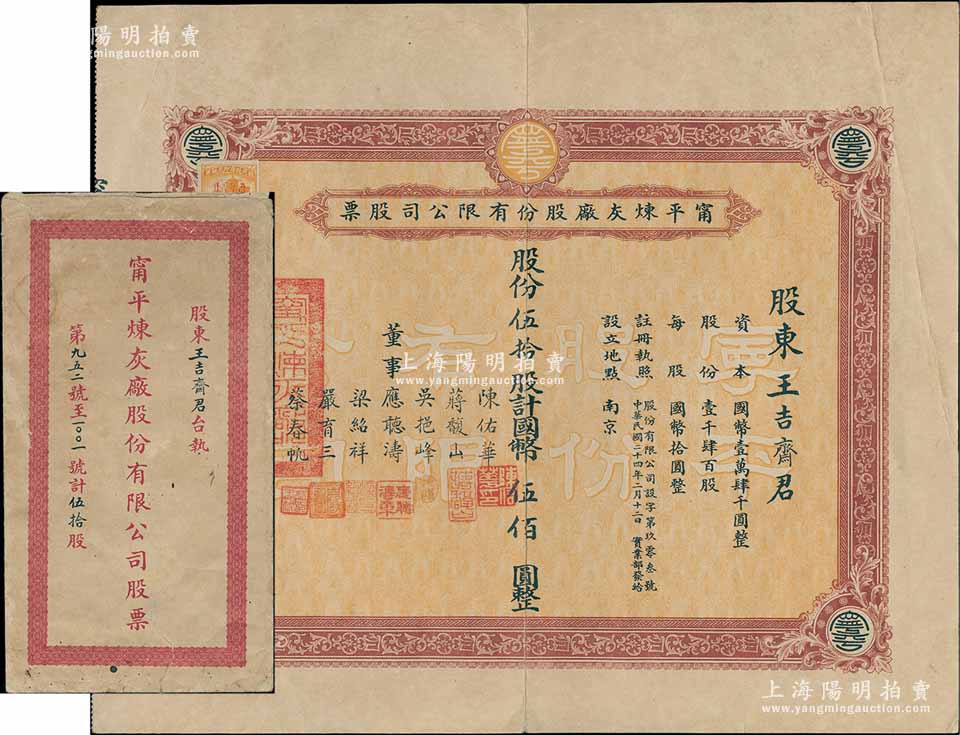 上海陽明拍賣
yangmingauction.com
甯平煉灰廠股份有限公司股票
股東王吉齋君
資本 國幣壹萬肆千圓整
股份 壹千肆百股
每股 國幣拾圓整
註冊執照 股份有限公司設字第玖零叁號
中華民國二十四年二月十二日 實業部發給
設立地點 南京
股份伍拾股計國幣伍佰圓整
董事
陳佑華
蔣馥山
吳挹峰
應聽濤
梁紹祥
嚴育三
蔡春帆
股東王吉齋君台執
甯平煉灰廠股份有限公司股票
第九五二號至一〇〇一號計伍拾股
上海陽明拍賣
www.yangmingauction.com
上海陽明拍賣
www.yangmingauction.com